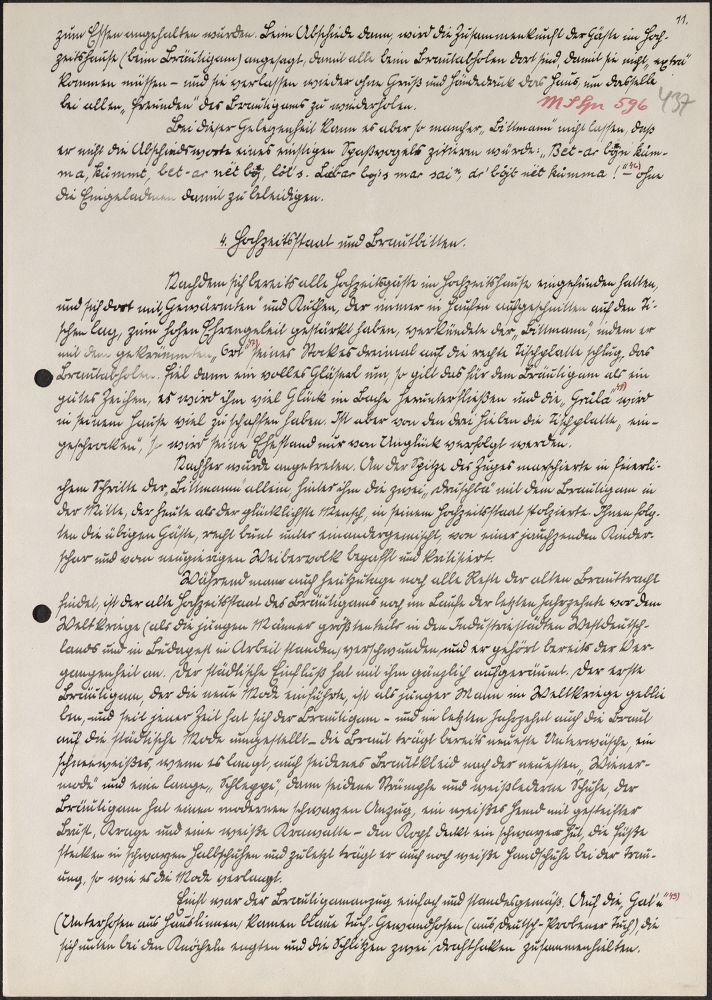 11.
zum Essen angehalten wurden. Beim Abschiede dann, wird die Zusammenkunft der Gäste im Hoch-
zeitshause (beim Bräutigam) angesagt, damit alle beim Brautabholen dort sind, damit sie nicht „extra"
kommen müssen – und sie verlassen wieder ohne Gruß und Händedruck das Haus, um dasselbe
bei allen „Freunden" des Bräutigams zu wiederholen.
MS Gn 596 437
Bei dieser Gelegenheit kann es aber so mancher „Bittmann" nicht lassen, daß
er nicht die Abschiedsworte eines einstigen Spaßvogels zitieren würde: „Bet-ar kum-
ma, kummt, bet-ar nët löt's. mar dr' nët kumma!" – ohne
die Eingeladenen damit zu beleidigen.
4. Hochzeitsstaat und Brautbitten.
Nachdem sich bereits alle Hochzeitsgäste im Hochzeitshause eingefunden hatten,
und sich dort mit „Gewärmten" und Kuchen, der immer in Haufen aufgeschnitten auf den Ti-
schen lag, zum hohen Ehrengeleit gestärkt haben, verkündete der „Bittmann", indem er
mit dem gekrümmten „Ort" seines Stockes dreimal auf die rechte Tischplatte schlug, das
Brautabholen. Fiel dann ein volles Gläserl um, so gilt das für den Bräutigam als ein
gutes Zeichen, es wird ihm viel Glück im Bache herunterfließen und die „Grila" wird
in seinem Hause viel zu schaffen haben. Ist aber von den drei Hieben die Tischplatte „ein-
geschrocken", so wird seine Ehestand nur von Unglück verfolgt werden.
Nachher wurde angetreten. An der Spitze des Zuges marschierte in feierli-
chem Schritte der „Bittmann" allein, hinter ihm die zwei „ " mit dem Bräutigam in
der Mitte, der heute als der glücklichste Mensch in seinem Hochzeitsstaat stolzierte. Ihnen folg-
ten die übigen Gäste, recht bunt unter einandergemischt, von einer jauchzenden Kinder-
schar und vom neugierigen Weibervolk begafft und kritisiert.
Während man auch heutzutage noch alle Reste der alten Brauttracht
findet, ist der alte Hochzeitsstaat des Bräutigams noch im Laufe der letzten Jahrzehnte vor dem
Weltkriege (als die jungen Männer größtenteils in den Industriestädten Westdeutsch-
lands und in Budapest in Arbeit standen) verschwunden und er gehört bereits der Ver-
gangenheit an. Der städtische Einfluß hat mit ihm gänzlich aufgeräumt. Der erste
Bräutigam, der die neue Mode einführte, ist als junger Mann im Weltkriege geblie
ben, und seit jener Zeit hat sich der Bräutigam – und im letzten Jahrzehnt auch die Braut
auf die städtische Mode umgestellt – die Braut trägt bereits neueste Unterwäsche, ein
schneeweißes, wenn es langt, auch seidenes Brautkleid nach der neuesten „Wiener-
mode" und eine lange „Schleppe", dann seidene Strümpfe und weißlederne Schuhe, der
Bräutigam hat einen modernen schwarzen Anzug, ein weißes Hemd mit gesteifter
Brust, Krage und eine weiße Krawatte – den Kopf deckt ein schwarzer Hut, die Füße
stecken in schwarzen Halbschuhen und zuletzt trägt er auch noch weiße Handschuhe bei der Trau-
ung, so wie es die Mode verlangt.
Einst war der Bräutigamanzug einfach und standesgemäß. Auf die „Gat'n" 43)
(Unterhosen aus Hauslinnen) kamen blaue Tuch-Gewandhosen (aus Deutsch-Probener Tuch), die
sich unten bei den Knöcheln engten und die Schlitzen zwei Drahthaken zusammenhielten.